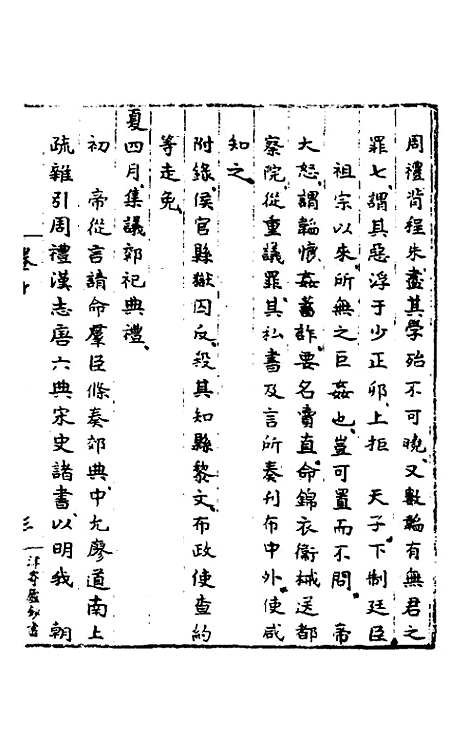 周禮背程朱盡其學殆不可曉又數韜有無君之
罪七謂其惡浮于少正卯上拒　天子下制廷臣
祖宗以來所無之巨姦也豈可置而不問　帝
大怒謂韜懷姦蓄詐要名賣直命錦衣衛械送都
察院從重議罪其私書及言所奏刋布中外使咸
知之
附錄侯官縣獄囚反殺其知縣黎文布政使查約
等走免
夏四月集議郊祀典禮
初　帝從言請命羣臣條奏郊典中允廖道南上
疏雜引周禮漢志唐六典宋史諸書以明我　朝
三